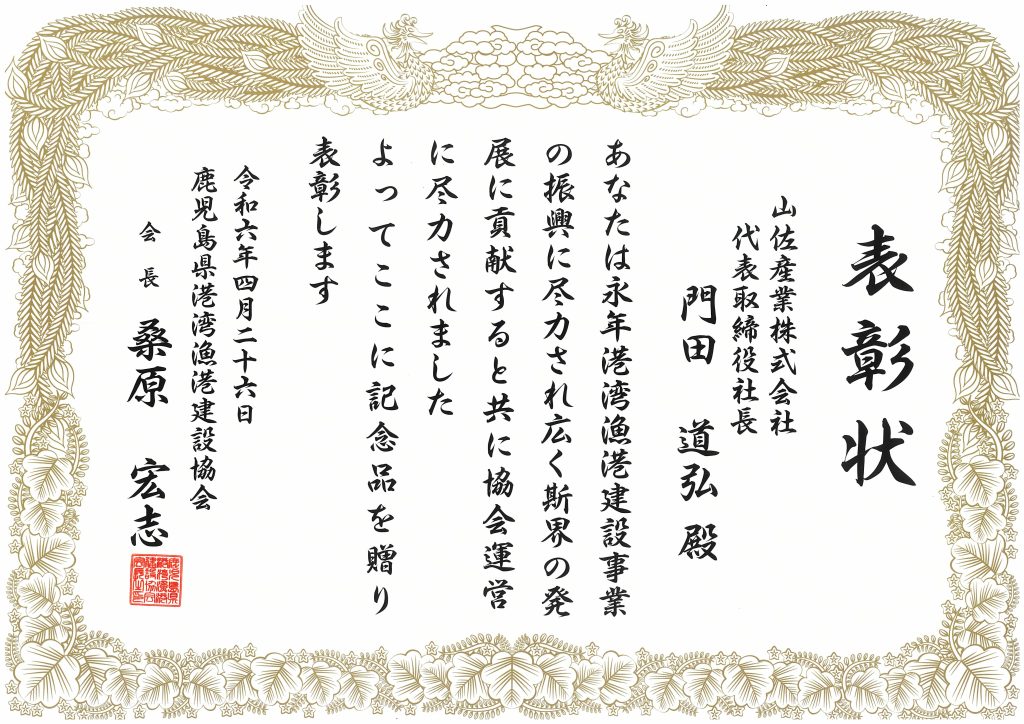 表彰状
山佐産業株式会社
代表取締役社長
門田 道弘 殿
あなたは永年港湾漁港建設事業
の振興に尽力され広く斯界の発
展に貢献すると共に協会運営
に尽力されました
よってここに記念品を贈り
表彰します
令和六年四月二十六日
鹿児島県港湾漁港建設協会
会長 桑原 宏志